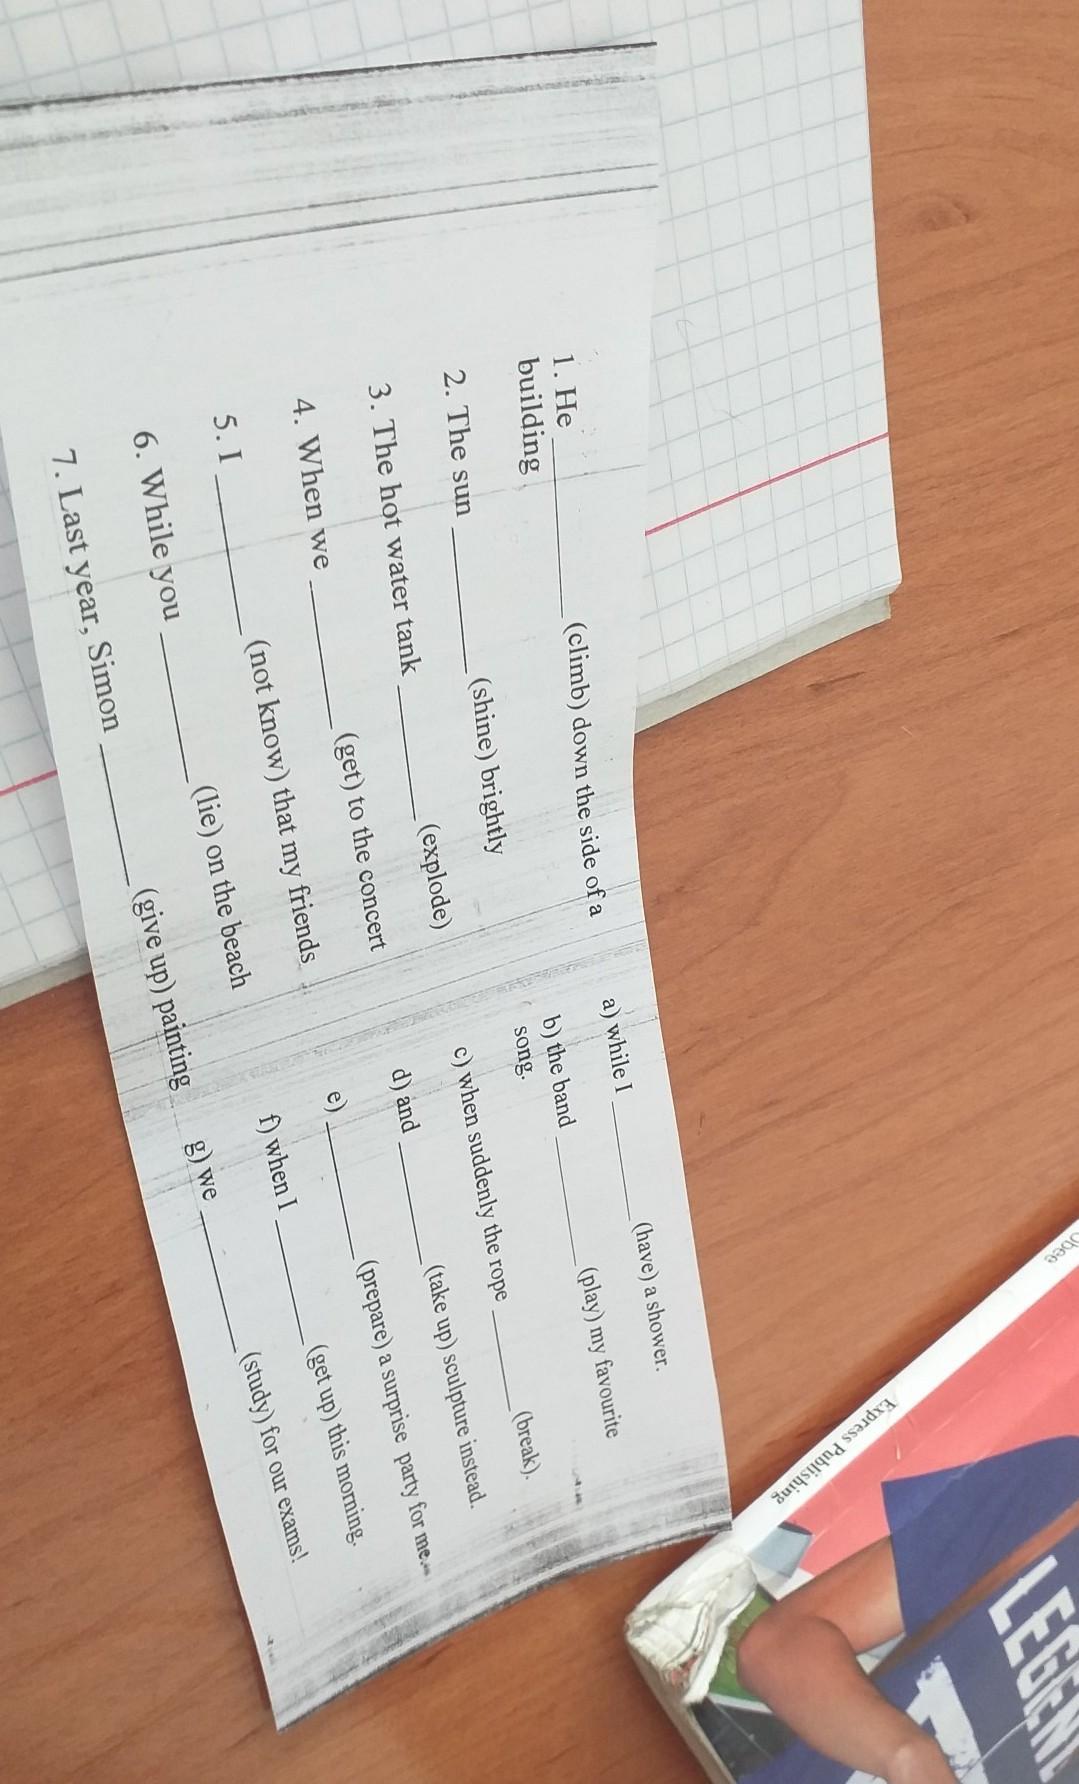 1. He ____________ (climb) down the side of a
building
2. The sun __________ (shine) brightly
3. The hot water tank _________ (explode)
4. When we __________ (get) to the concert
5. I ___________ (not know) that my friends
6. While you __________ (lie) on the beach
7. Last year, Simon __________ (give up) painting
a) while I _________ (have) a shower.
b) the band __________ (play) my favourite
song.
c) when suddenly the rope ________ (break).
d) and __________ (take up) sculpture instead.
e) ___________ (prepare) a surprise party for me.
f) when I __________ (get up) this morning.
g) we ___________ (study) for our exams!
Express Publishing